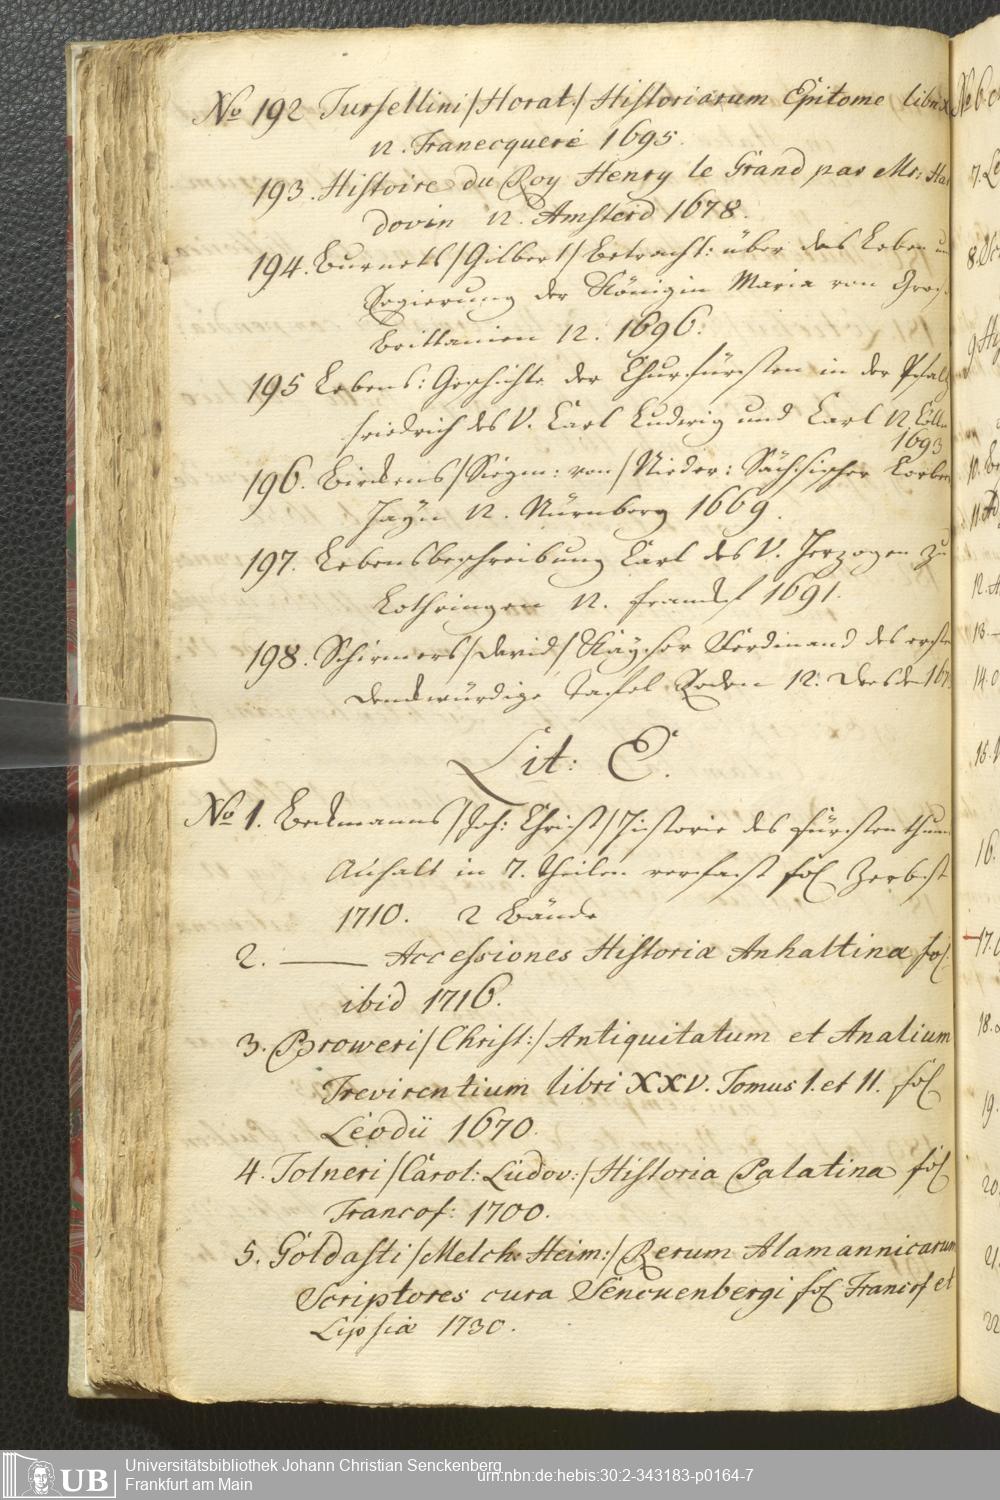 No 192 Turſellini /Horat:/ Hiſtoriarum Epitome libri X
12. Franecqueré 1695.
193. Hiſtoire du Roy Henry le Grand par Mr: Har
dovin 12. Amſterd 1678.
194. Burnets /Gilbert/ Betracht: über das Leben und
Regierung der Königin Maria von Gros-
Brittanien 12. 1696.
195 Lebens: Geschichte der Churfürsten in der Pfaltz
friedrich des V. Carl Ludwig und Carl 12. Cölln
1693
196. Birckens /Siegm: von/ Nieder: Sächsischer Lorber
Hayn 12. Nürnberg 1669.
197. Lebensbeschreibung Carl des V. Herzogen zu
Lothringen 12. franckf 1691.
198. Schirmers /David/ Kayser Ferdinand des ersten
denckwürdige Tafel Reden 12. Dresden 167
Lit: E.
No 1. Beckmanns /Joh: Christ/ Historie des fürstenthum
Anhalt in 7. theilen verfast fol Zerbst
1710. 2 Bände
2. —— Acceſsiones Hiſtoriæ Anhaltinæ fol.
ibid 1716.
3. Broweri /Chriſt:/ Antiquitatum et Analium
Trevirentium libri XXV. Tomus I. et II. fol
Leodii 1670.
4. Tolneri /Carol: Ludov:/ Hiſtoria Palatina fol
Francof: 1700.
5. Goldaſti /Melch: Heim:/ Rerum Alamannicarum
Scriptores cura Senckenbergi fol Francof et
Lipſiæ 1730.
Universitätsbibliothek Johann Christian Senckenberg
Frankfurt am Main
urn:nbn:de:hebis:30:2-343183-p0164-7
UB